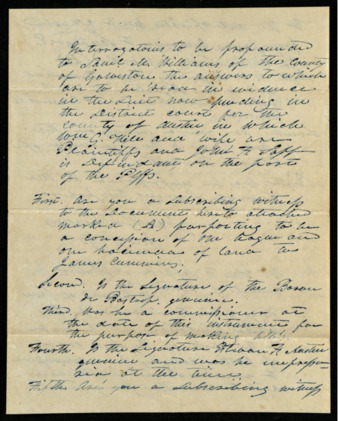 Interrogatories to be propounded
to Saml M Williams of the County
of Galveston the answers to which
are to be read in evidence
in the suit now pending in
the District court for the
county of Austin in which
Wm C. Hill and wife are
Plaintiffs and John H.
is Defendant on the part
of the Plffs.
First. Are you a Subscribing witness
to the Document hereto attached
marked (A) purporting to be
a concession of one league and
one of land to
James Cummins.
Second. Is the Signature of the Baron
de Bastrop genuine.
Third. Was he a commissioner at
the date of this instrument for
the purpose of making
Fourth. Is the Signature of Stephen F. Austin
genuine and was he empresa-
rio at the time.
Fifth Are you a Subscribing witness